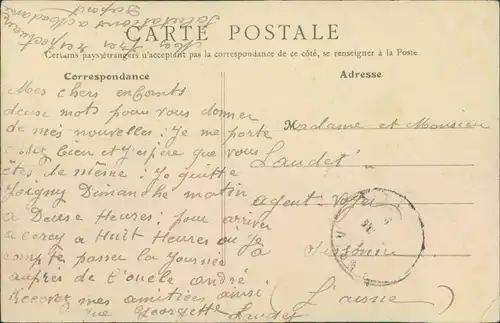 CARTE POSTALE
Certains pays étrangers n'acceptant pas la correspondance de ce côté, se renseigner à la Poste
Correspondance
Adresse
Mes chers enfants
deuse mots pour vous donner
de mes nouvelles : Je me porte
assez bien et j'espère que vous
êtes de même : Je quitte
Joigny Dimanche matin
a Deuse Heures ; pour arriver
a cercy a Huit Heures ou je
compte passer la Journée
auprès de l'oncle andré.
Recevez mes amitiées ainsi
que Georgette Laudet
Madame et Monsieur
Laudet
agent-Voyer
a
(L'aisne)
Mes
respectueuses
Salutations a Madame
Dupont